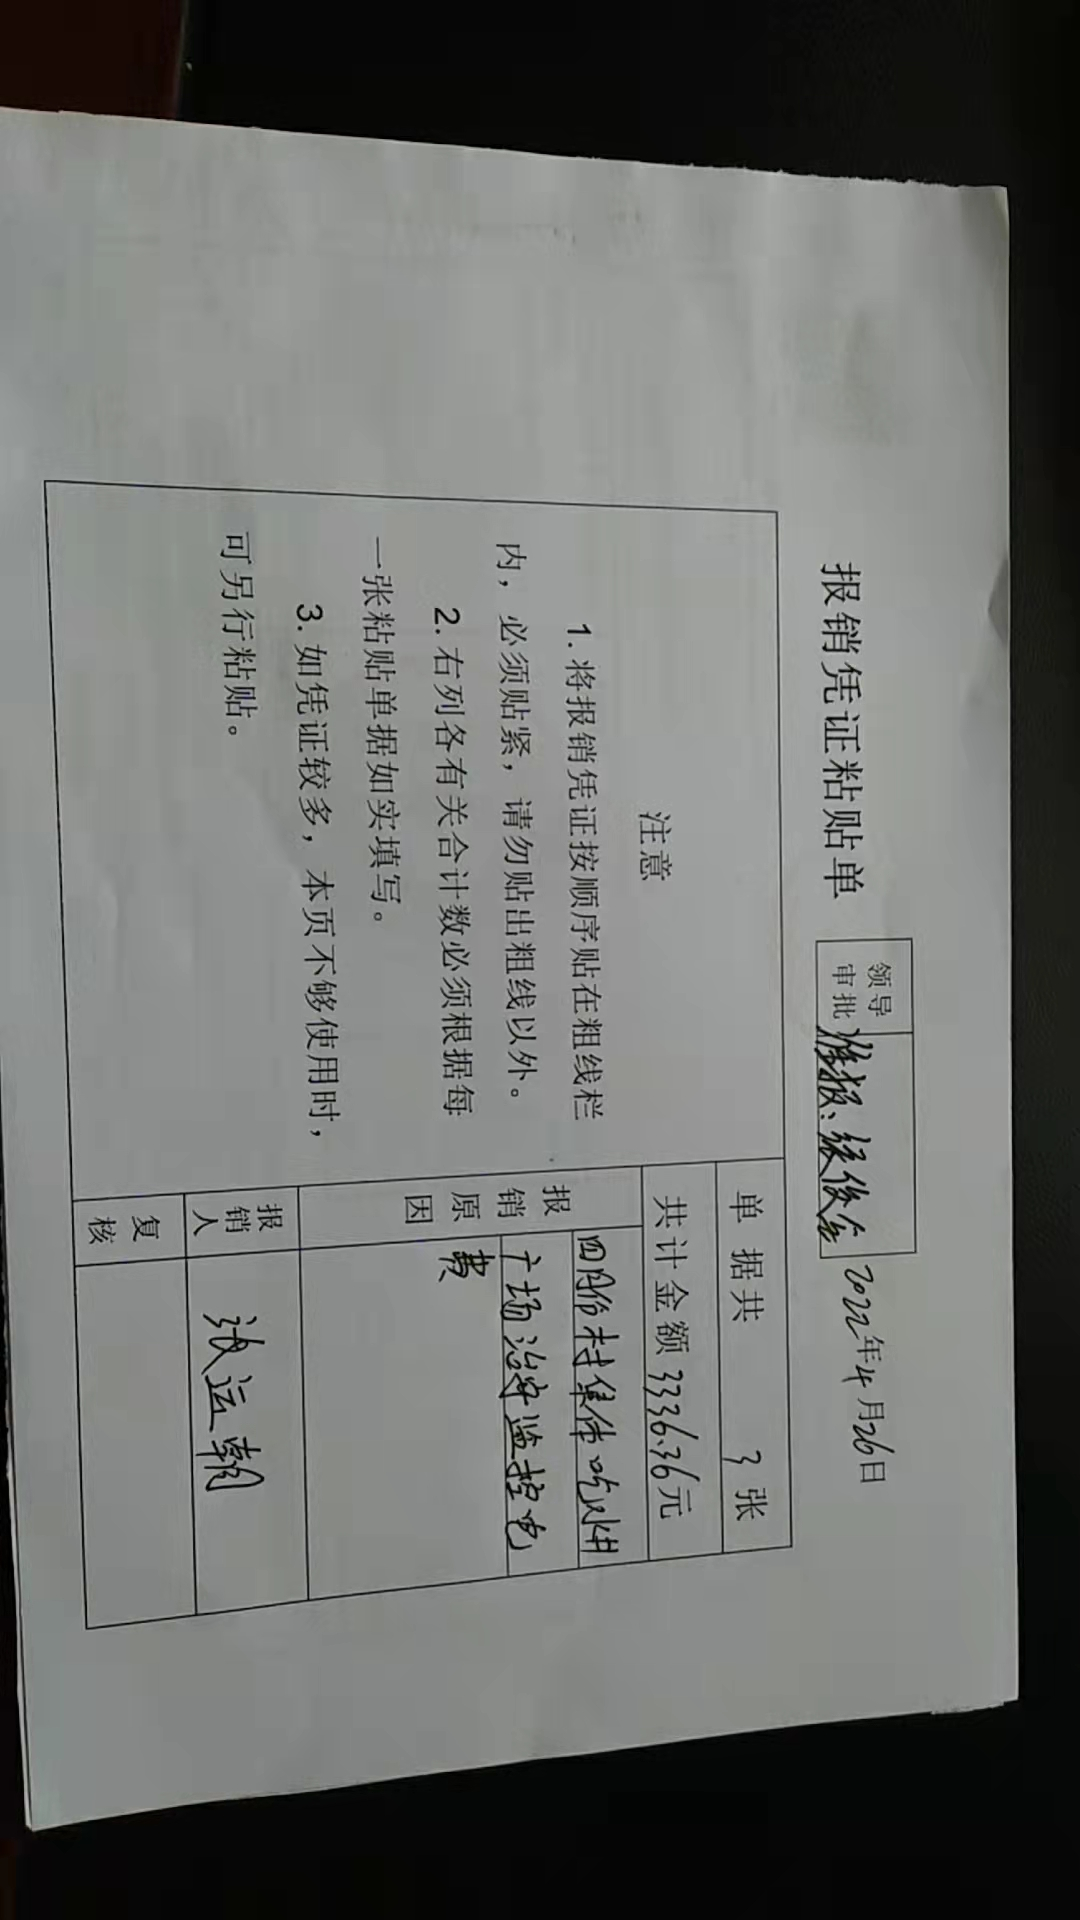 报销凭证粘贴单
领导
审批
准报:张俊全
2022年4月26日
注意
1. 将报销凭证按顺序贴在粗线栏
内，必须贴紧，请勿贴出粗线以外。
2. 右列各有关合计数必须根据每
一张粘贴单据如实填写。
3. 如凭证较多，本页不够使用时，
可另行粘贴。
单据共 3 张
共计金额 3336.36元
报销原因
四月份村集体吃水井
广场治安监控电
费
报销人
张运朝
复核